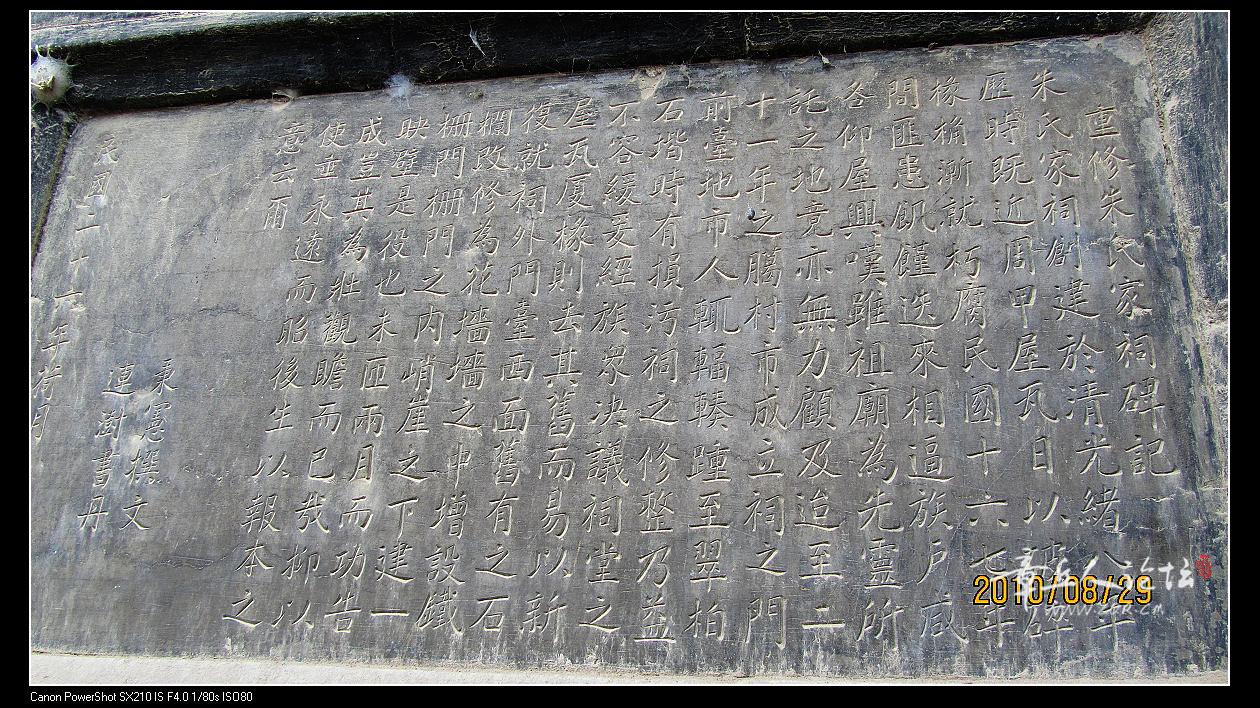 重修朱氏家祠碑記
朱氏家祠創建於清光緒八年
歷時既近周甲屋瓦日以
椽桷漸就朽腐民國十六七年
間匪患飢饉迭來相逼族戶咸
咨仰屋興嘆雖祖廟為先靈所
託之地竟亦無力顧及迨至二
十一年之臈村市成立祠之門
前臺地市人輒輻輳踵至翠柏
石堦時有損污祠之修整乃益
不容緩爰經族眾决議祠堂之
屋瓦厦椽則去其舊而易以新
復就祠外門臺西面舊有之石
欄改修為花墻墻之中增設鐵
栅門栅門之内峭崖之下建一
映壁是役也未匝兩月而功告
成豈其為壯觀瞻而已哉抑以
使垂永遠而昭後生以報本之
意云爾
秉憲撰文
連澍書丹
民國二十一年荷月
2010/08/29
章丘人论坛
Canon PowerShot SX210 IS F4.0 1/80s ISO80